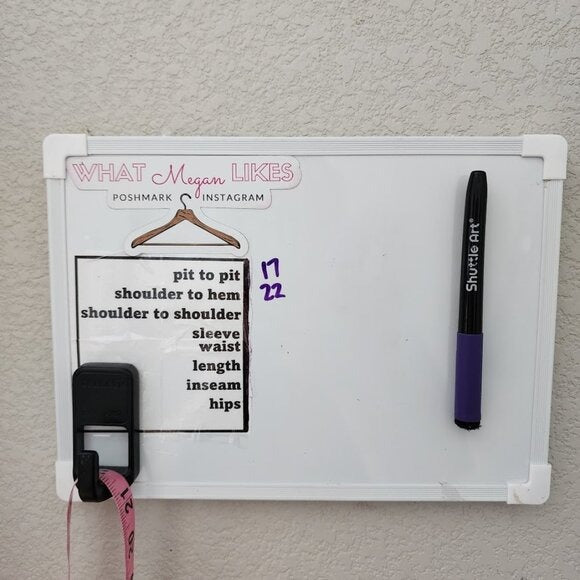 WHAT Megan LIKES
POSHMARK INSTAGRAM
pit to pit 17
shoulder to hem 22
shoulder to shoulder
sleeve
waist
length
inseam
hips
Shuttle Art®
21
20